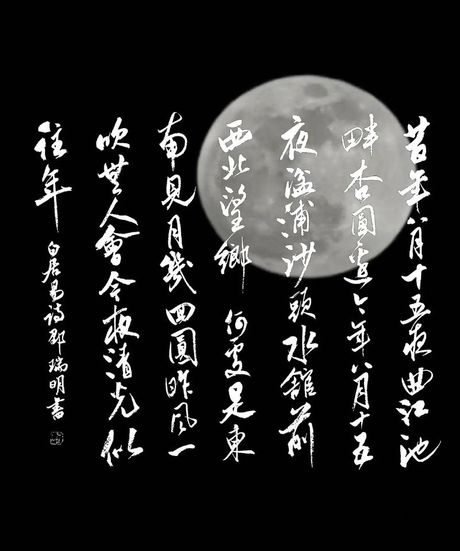 昔年八月十五夜曲江池
畔杏圓邊今年八月十五
夜湓浦沙頭水舘前
西北望鄉何處是東
南見月幾回圓昨風一
吹無人會今夜清光似
往年
白居易詩瑞明書